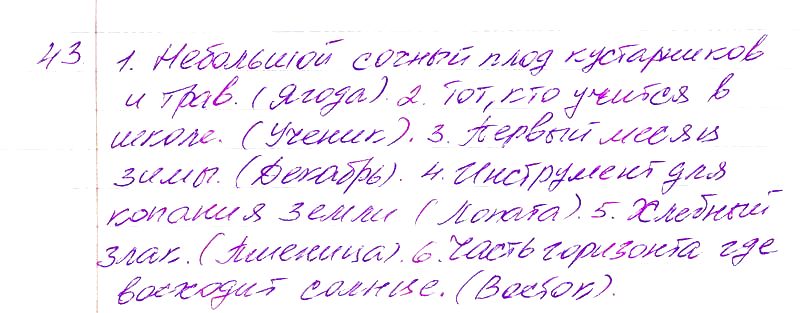 43 1. Небольшой сочный плод кустарников
и трав. (Ягода). 2. Тот, кто учится в
школе. (Ученик). 3. Первый месяц
зимы. (Декабрь). 4. Инструмент для
копания земли (Лопата). 5. Хлебный
злак. (Пшеница). 6. Часть горизонта где
восходит солнце. (Восток).